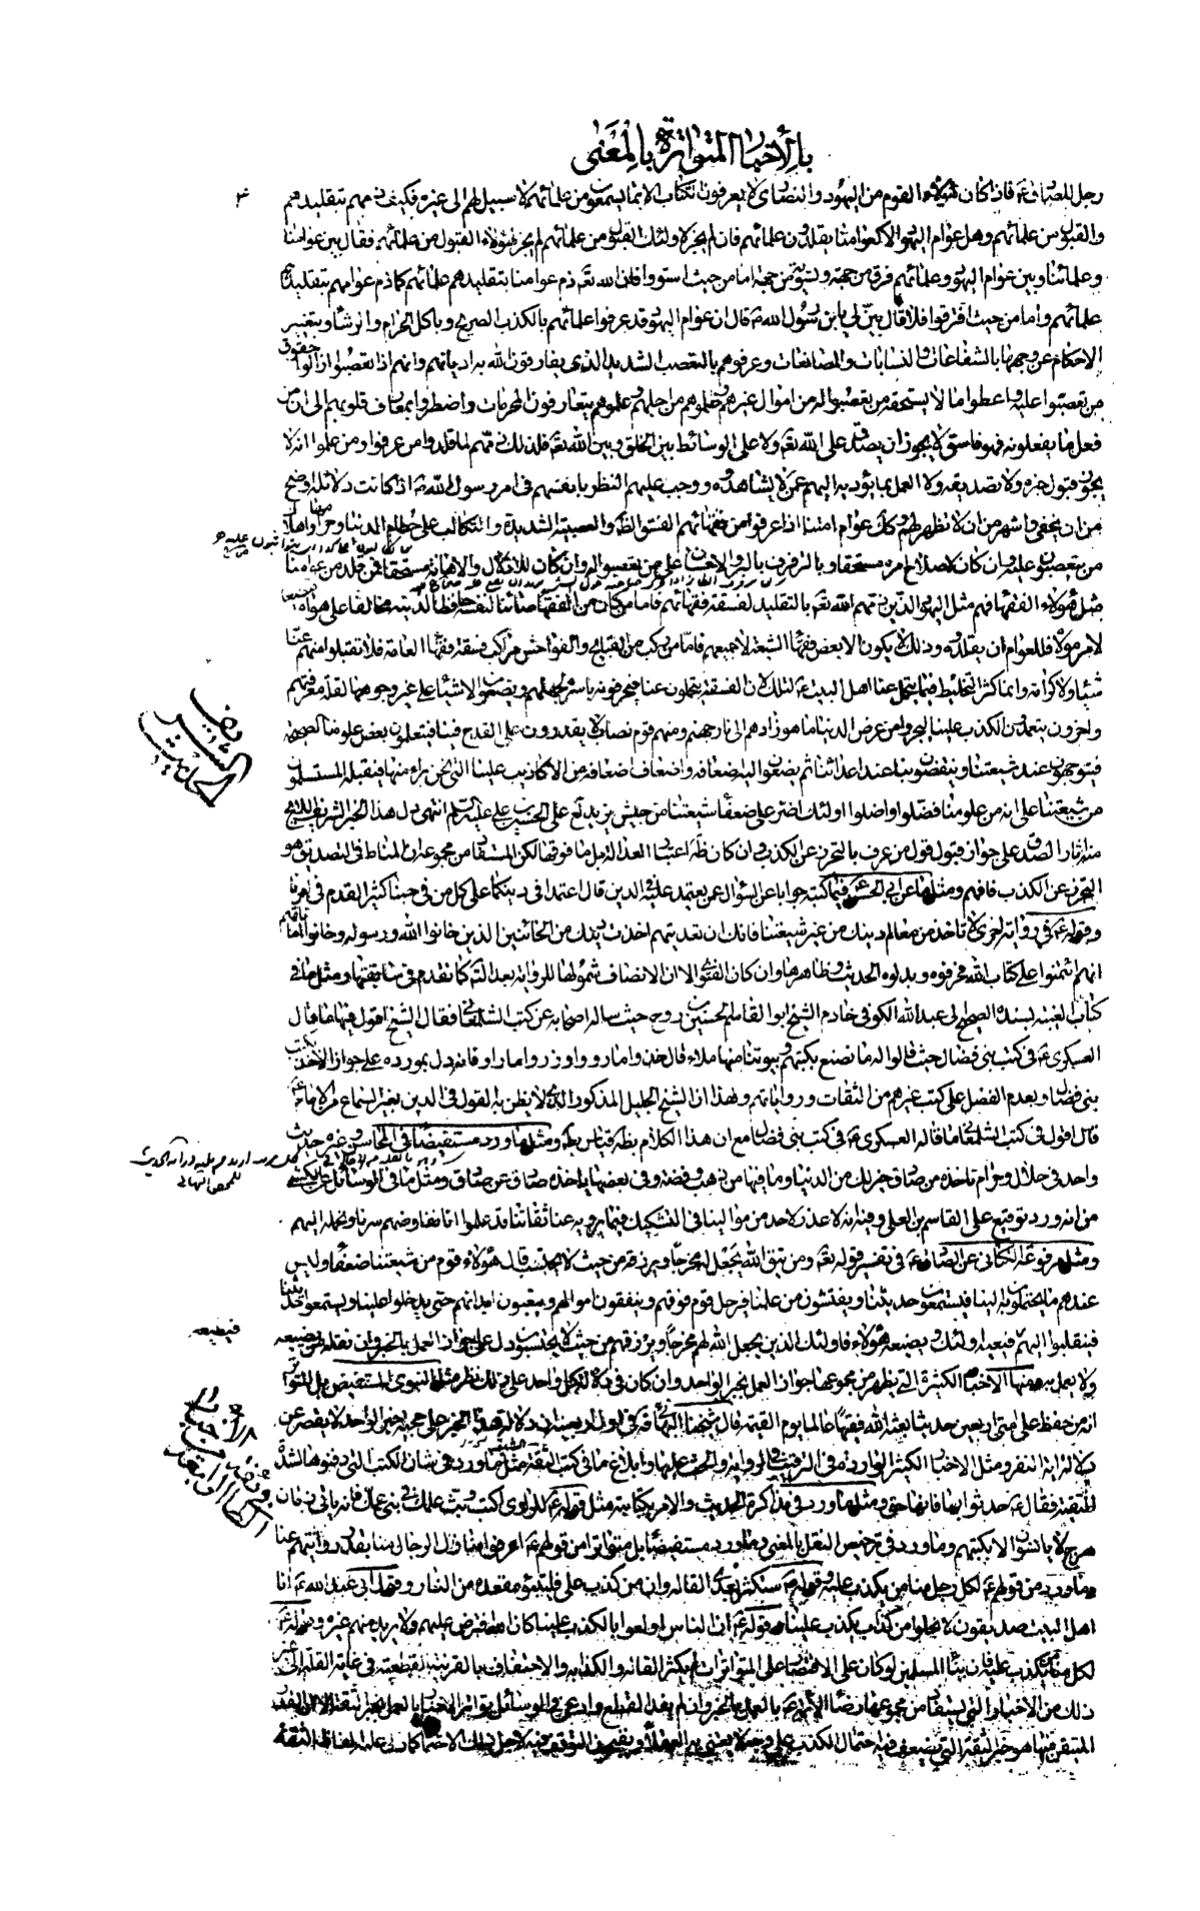 بالأخبار المتواترة بالمعنى
رجل للصادق ع فاذا كان هؤلاء القوم من اليهود والنصارى لا يعرفون الكتاب الا بما يسمعون من علمائهم لا سبيل لهم الى غيره فكيف ذمهم بتقليدهم
والقبول من علمائهم وهل عوام اليهود الا كعوامنا يقلدون علمائهم فان لم يجز لاولئك القبول من علمائهم لم يجز لهؤلاء القبول من علمائهم فقال بين عوامنا
وعلمائنا وبين عوام اليهود وعلمائهم فرق من جهة وتسوية من جهة اما من حيث استووا فان الله تعه ذم عوامنا بتقليدهم علمائهم كما ذم عوامهم بتقليدهم
علمائهم واما من حيث افترقوا فلا قال بين لي يابن رسول الله ص قال ان عوام اليهود قد عرفوا علمائهم بالكذب الصريح وباكل الحرام والرشاء وبتغيير
الاحكام عن وجهها بالشفاعات والنسابات والمصانعات وعرفوهم بالتعصب الشديد الذي يفارقون الله به اديانهم وانهم اذا تعصبوا ازالوا حقوق
من تعصبوا عليه واعطوا ما لا يستحقه من تعصبوا له من اموال غيرهم وظلموهم من اجلهم وعلموهم يتعارفون المحرمات واضطروا بمعارف قلوبهم الى ان من
فعل ما يفعلونه فهو فاسق لا يجوز ان يصدق على الله تعه ولا على الوسائط بين الخلق وبين الله تعه فلذلك ذمهم لما قلدوا من عرفوا ومن علموا انه لا
يجوز قبول خبره ولا تصديقه ولا العمل بما يؤديه اليهم عمن لا يشاهدوه ووجب عليهم النظر بانفسهم في امر رسول الله ص اذ كانت دلائله اوضح
من ان يخفى واشهر من ان لا تظهر لهم وكذلك عوام امتنا اذا عرفوا من فقهائهم الفسق الظاهر والعصبية الشديدة والتكالب على حطام الدنيا وحرامها واهلاك
من يتعصبون عليه وان كان لاصلاح امره مستحقا وبالترفرف بالبر والاحسان على من تعصبوا له وان كان للاذلال والاهانة مستحقا فمن قلد من عوامنا
مثل هؤلاء الفقهاء فهم مثل اليهود الذين ذمهم الله تعه بالتقليد لفسقة فقهائهم فاما من كان من الفقهاء صائنا لنفسه حافظا لدينه مخالفا على هواه مطيعا
لامر مولاه فللعوام ان يقلدوه وذلك لا يكون الا بعض فقهاء الشيعة لا جميعهم فاما من يركب من القبايح والفواحش مراكب فسقة فقهاء العامة فلا تقبلوا منهم عنا
شيئا ولا كرامة وانما كثر التخليط فيما يتحمل عنا اهل البيت ع لذلك لان الفسقة يتحملون عنا فيحرفونه باسره لجهلهم ويضعون الاشياء على غير وجوهها لقلة معرفتهم
واخرون يتعمدون الكذب علينا ليجروا من عرض الدنيا ما هو زادهم الى نار جهنم ومنهم قوم نصاب لا يقدرون على القدح فينا فيتعلمون بعض علومنا الصحيحة
فيتوجهون عند شيعتنا وينتقصون بنا عند اعدائنا ثم يضعون اليه اضعافه واضعاف اضعافه من الاكاذيب علينا التي نحن براء منها فيقبله المستسلمون
من شيعتنا على انه من علومنا فضلوا واضلوا اولئك اضر على ضعفاء شيعتنا من جيش يزيد لع على الحسين بن علي عليه السلم انتهى دل هذا الخبر الشريف اللايح
منه آثار الصدق على جواز قبول قول من عرف بالتحرز عن الكذب وان كان ظاهره اعتبار العدالة بل ما فوقها لكن المستفاد من مجموعه ان المناط في التصديق هو
التحرز عن الكذب فافهم ومثلها عن ابي الحسن ع فيما كتبه جوابا عن السؤال عمن يعتمد عليه في الدين قال اعتمدا في دينكما على كل مسن في حبنا كثير القدم في امرنا
وقوله ع في رواية اخرى لا تأخذن معالم دينك من غير شيعتنا فانك ان تعديتهم اخذت دينك من الخائنين الذين خانوا الله ورسوله وخانوا اماناتهم
انهم ائتمنوا على كتاب الله فحرفوه وبدلوه الحديث وظاهرها وان كان الفتوى الا ان الانصاف شمولها للرواية بعد التأمل كما تقدم في سابقتها ومثل ما في
كتاب الغيبة بسنده الصحيح الى عبد الله الكوفي خادم الشيخ ابو القاسم الحسين بن روح حيث ساله اصحابه عن كتب الشلمغاني فقال الشيخ اقول فيها ما قال
العسكري ع في كتب بني فضال حيث قالوا له ما نصنع بكتبهم وبيوتنا منها ملاء قال خذوا ما رووا وذروا ما راوا فانه دل بمورده على جواز الاخذ بكتب
بني فضال وبعدم الفصل على كتب غيرهم من الثقات ورواياتهم ولهذا ان الشيخ الجليل المذكور الذي لا يظن به القول في الدين بغير السماع من الامام ع
قال اقول في كتب الشلمغاني ما قاله العسكري ع في كتب بني فضال مع ان هذا الكلام بظاهره قياس باطل ومثل ما ورد مستفيضا في المحاسن وغيره حديث
واحد في حلال وحرام تاخذه من صادق خير لك من الدنيا وما فيها من ذهب وفضة وفي بعضها ياخذه صادق عن صادق ومثل ما في الوسائل عن الكشي
من انه ورد توقيع على القاسم بن العلى وفيه انه لا عذر لاحد من موالينا في التشكيك فيما يرويه عنا ثقاتنا قد علموا انا نفاوضهم سرنا ونحمله اليهم
ومثل مرفوعة الكناني عن الصادق ع في تفسير قوله تعه ومن يتق الله يجعل له مخرجا ويرزقه من حيث لا يحتسب قال هؤلاء قوم من شيعتنا ضعفاء وليس
عندهم ما يتحملون به الينا فيستمعون حديثنا ويفتشون من علمنا فيرحل قوم فوقهم وينفقون اموالهم ويتعبون ابدانهم حتى يدخلوا علينا ويسمعوا حديثنا
فينقلبوا اليهم فيعيه اولئك ويضيعه هؤلاء فاولئك الذين يجعل الله لهم مخرجا ويرزقهم من حيث لا يحتسبون دل على جواز العمل بالخبر وان نقله من يضيعه
ولا يعمل به ومنها الاخبار الكثيرة التي يظهر من مجموعها جواز العمل بخبر الواحد وان كان في دلالة كل واحد على ذلك نظر مثل النبوى المستفيض بل المتواتر
انه من حفظ على امتي اربعين حديثا بعثه الله فقيها عالما يوم القيمة قال شيخنا البهائي قه في اول اربعينه ان دلالة هذا الخبر على حجية خبر الواحد لا يقصر عن
دلالة اية النفر ومثل الاخبار الكثيرة الواردة في الترغيب في الرواية والحث عليها وابلاغ ما في كتب الشيعة مثل ما ورد في شان الكتب التي دفنوها لشدة
التقية فقال ع حدثوا بها فانها حق ومثل ما ورد في مذاكرة الحديث والامر بكتابته مثل قوله ع للراوي اكتب وبث علمك في بني عمك فانه ياتي زمان
هرج لا يانسون الا بكتبهم وما ورد في ترخيص النقل بالمعنى وما ورد مستفيضا بل متواترا من قولهم ع اعرفوا منازل الرجال منا بقدر روايتهم عنا
وما ورد من قولهم ع لكل رجل منا من يكذب عليه وقوله ص ستكثر بعدي القالة وان من كذب علي فليتبوء مقعده من النار وقول ابي عبد الله ع انا
اهل البيت صديقون لا نخلوا من كذاب يكذب علينا وقوله ع ان الناس اولعوا بالكذب علينا كان الله افترض عليهم ولا يريد منهم غيره وقوله ع
لكل منا من يكذب عليه فان بناء المسلمين لو كان على الاقتصار على المتواترات لم يكثر القالة والكذابة والاحتفاف بالقرينة القطعية في غاية القلة الى غير
ذلك من الاخبار التي يستفاد من مجموعها رضاء الائمة ع بالعمل بالخبر وان لم يفد القطع وادعى في الوسائل تواتر الاخبار بالعمل بخبر الثقة الا ان القدر
المتيقن منها هو خبر الثقة الذي يضعف فيه احتمال الكذب على وجه لا يعتني به العقلاء ويقبحون التوقف فيه لاجل ذلك الاحتمال كما دل عليه الفاظ الثقة
فيضيعه